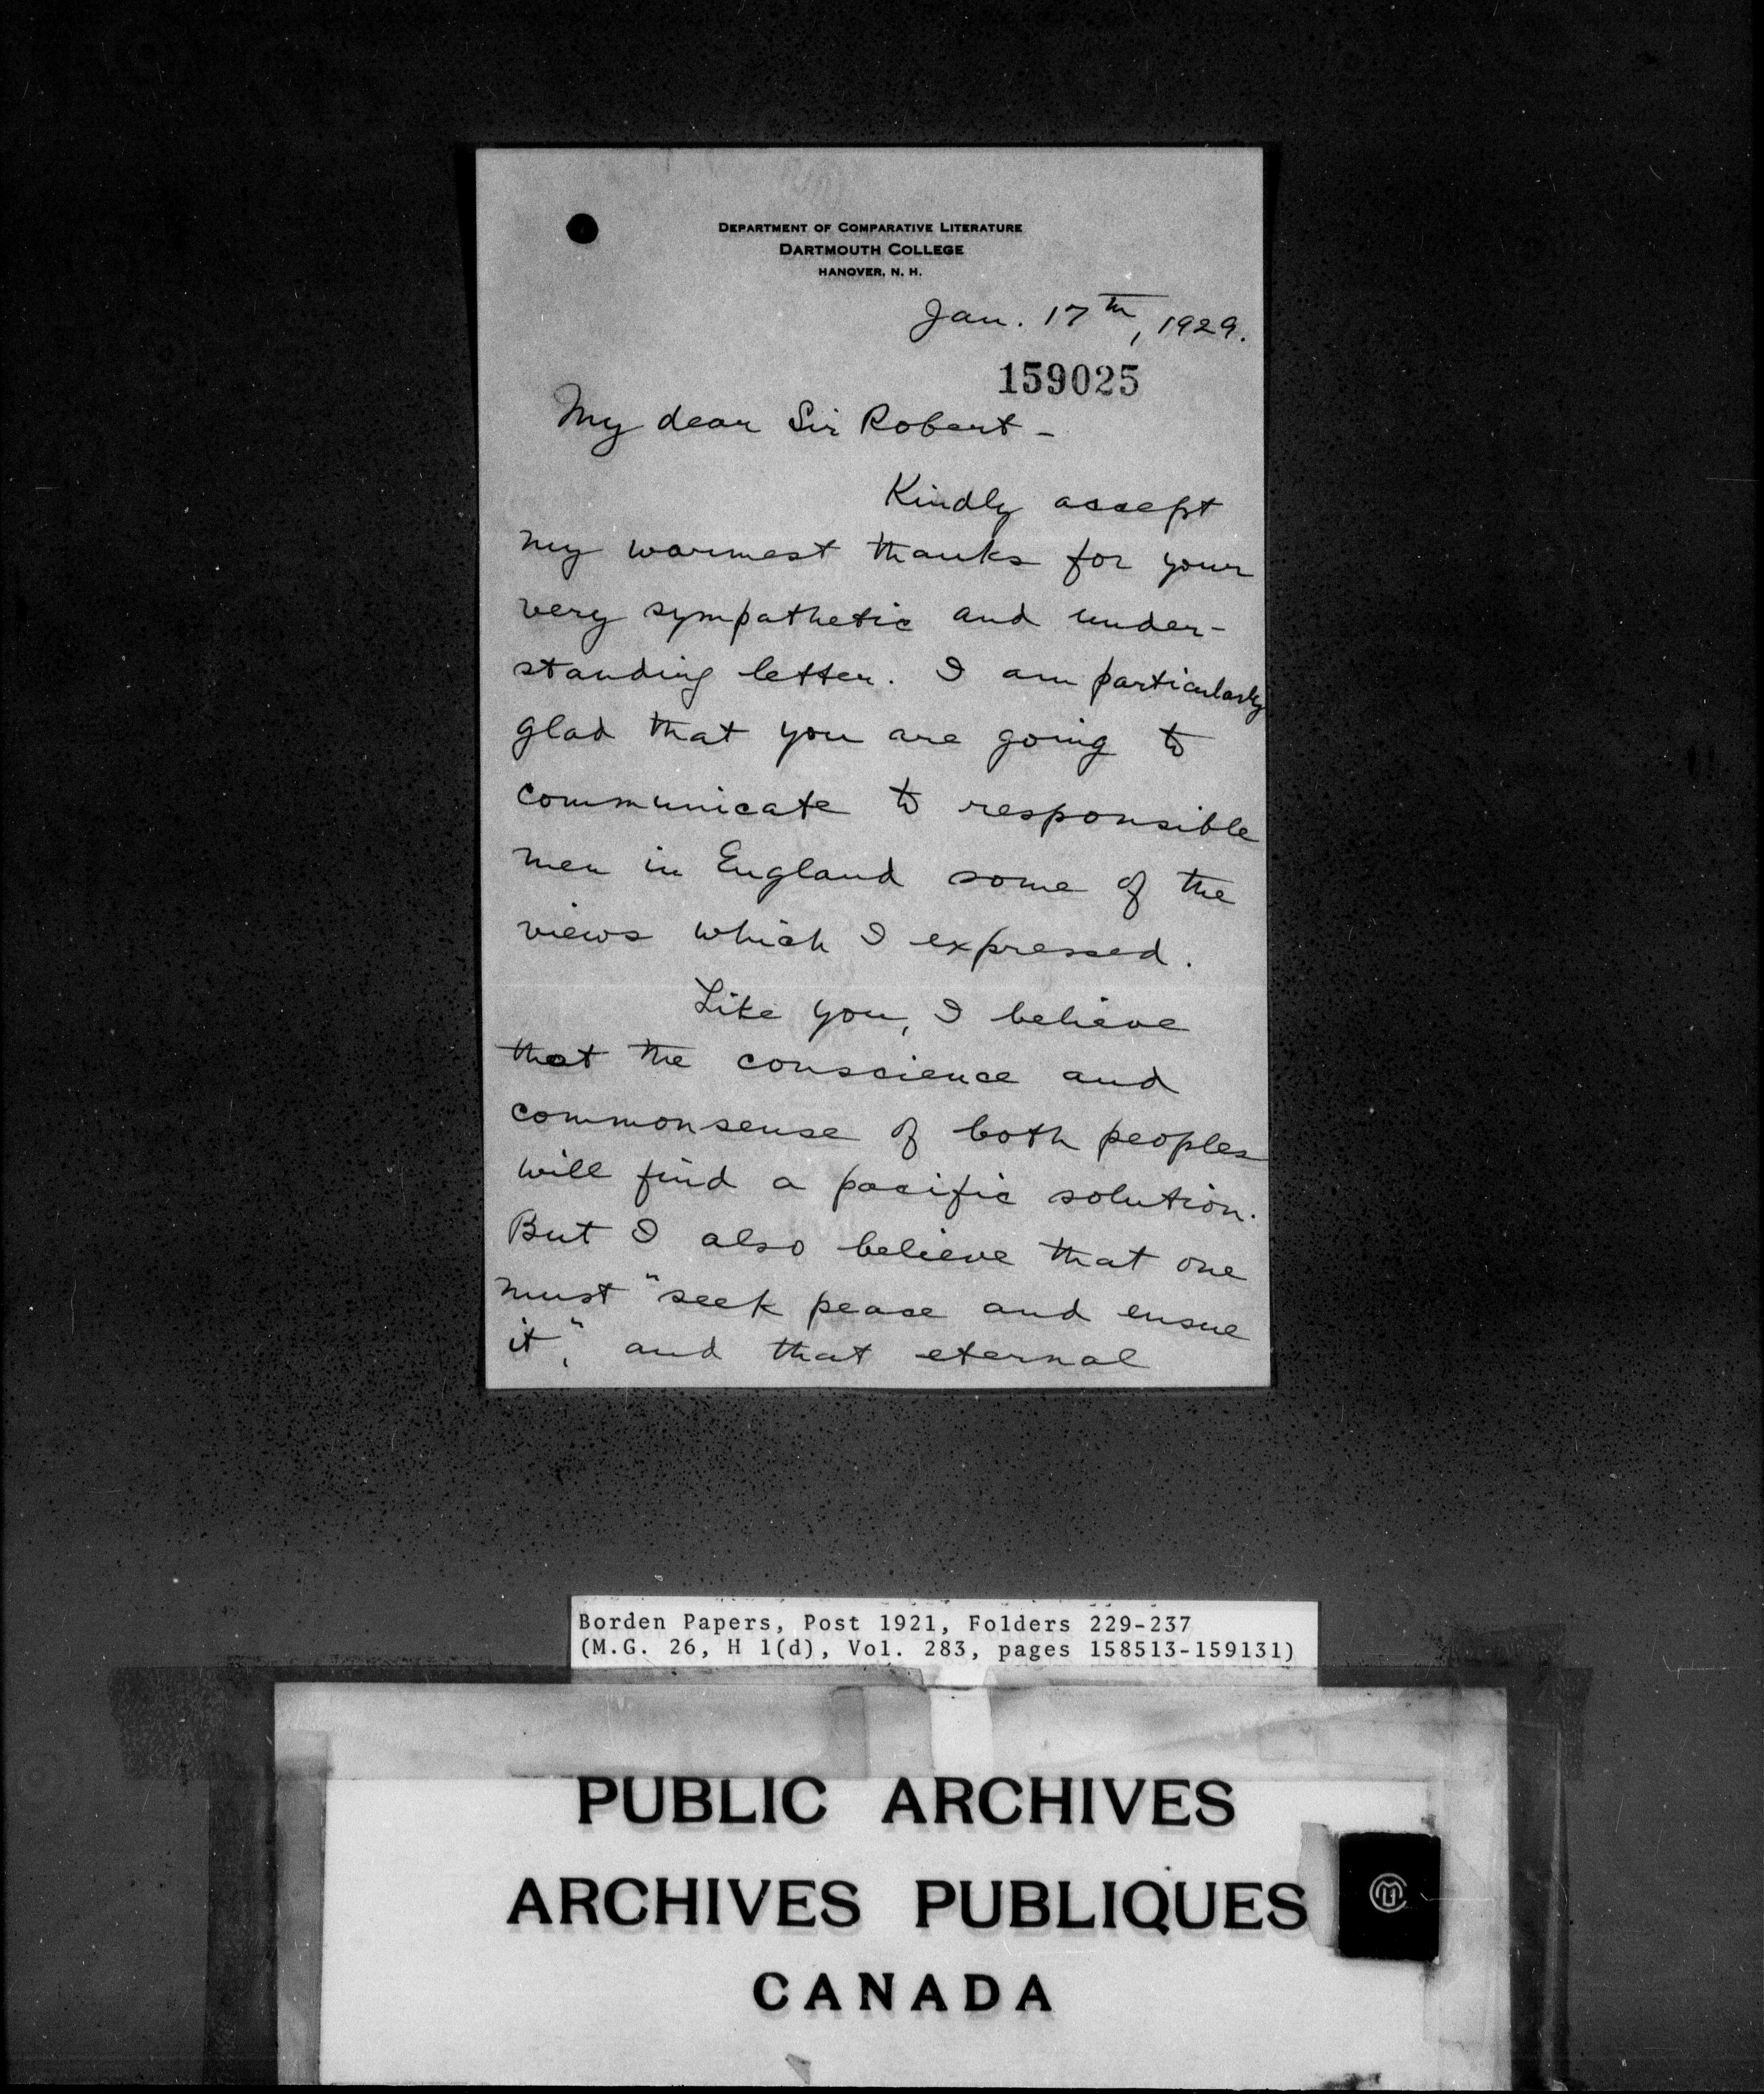 DEPARTMENT OF COMPARATIVE LITERATURE
DARTMOUTH COLLEGE
HANOVER, N. H.
Jan. 17th, 1929.
159025
My dear Sir Robert -
Kindly accept
my warmest thanks for your
very sympathetic and under-
standing letter. I am particularly
glad that you are going to
communicate to responsible
men in England some of the
views which I expressed.
Like you, I believe
that the conscience and
commonsense of both peoples
will find a pacific solution.
But I also believe that one
must "seek peace and ensue
it," and that eternal
Borden Papers, Post 1921, Folders 229-237
(M.G. 26, H 1(d), Vol. 283, pages 158513-159131)
PUBLIC ARCHIVES
ARCHIVES PUBLIQUES
CANADA